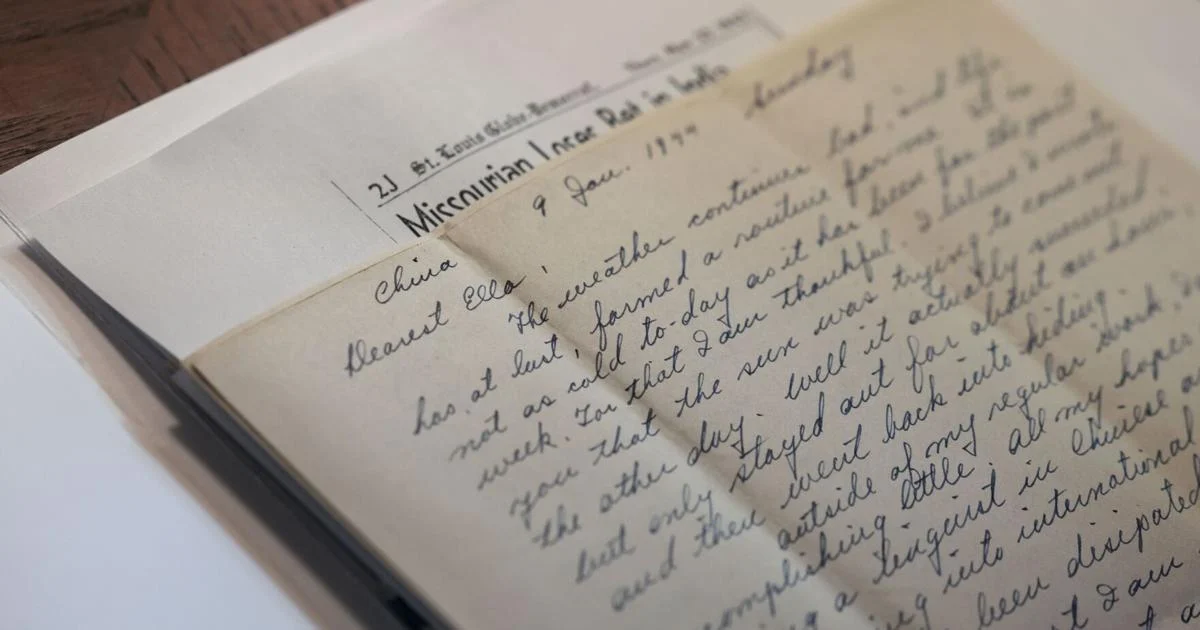 2J St. Louis Globe-Democrat
Missourian
9 Jan. 1944 Sunday
China
Dearest Ella,
The weather continues bad, and life
has, at last, formed a routine for me. It is
not as cold to-day as it has been for the past
week. For that I am thankful. I believe I wrote
you that the sun was trying to come out
the other day. Well it actually succeeded
but only stayed out for about an hour,
and then went back into hiding.
outside of my regular work,
accomplishing little. All my hopes
a linguist in Chinese
into international
been disipated
I am